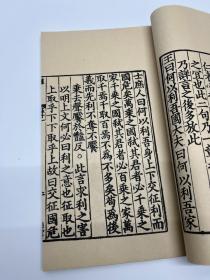 二句乃一
乃詳言之後多放此
王曰何以利吾國大夫曰何以利吾家
士庶人曰何以利吾身上下交征利而
國危矣萬乘之國弒其君者必千乘之
家千乘之國弒其君者必百乘之家萬
取千焉千取百焉不為不多矣苟為後
義而先利不奪不饜
乘去聲饜於豔反○此言求利之害
以明上文何必曰利之意也征取也
上取乎下下取乎上故曰交征國危